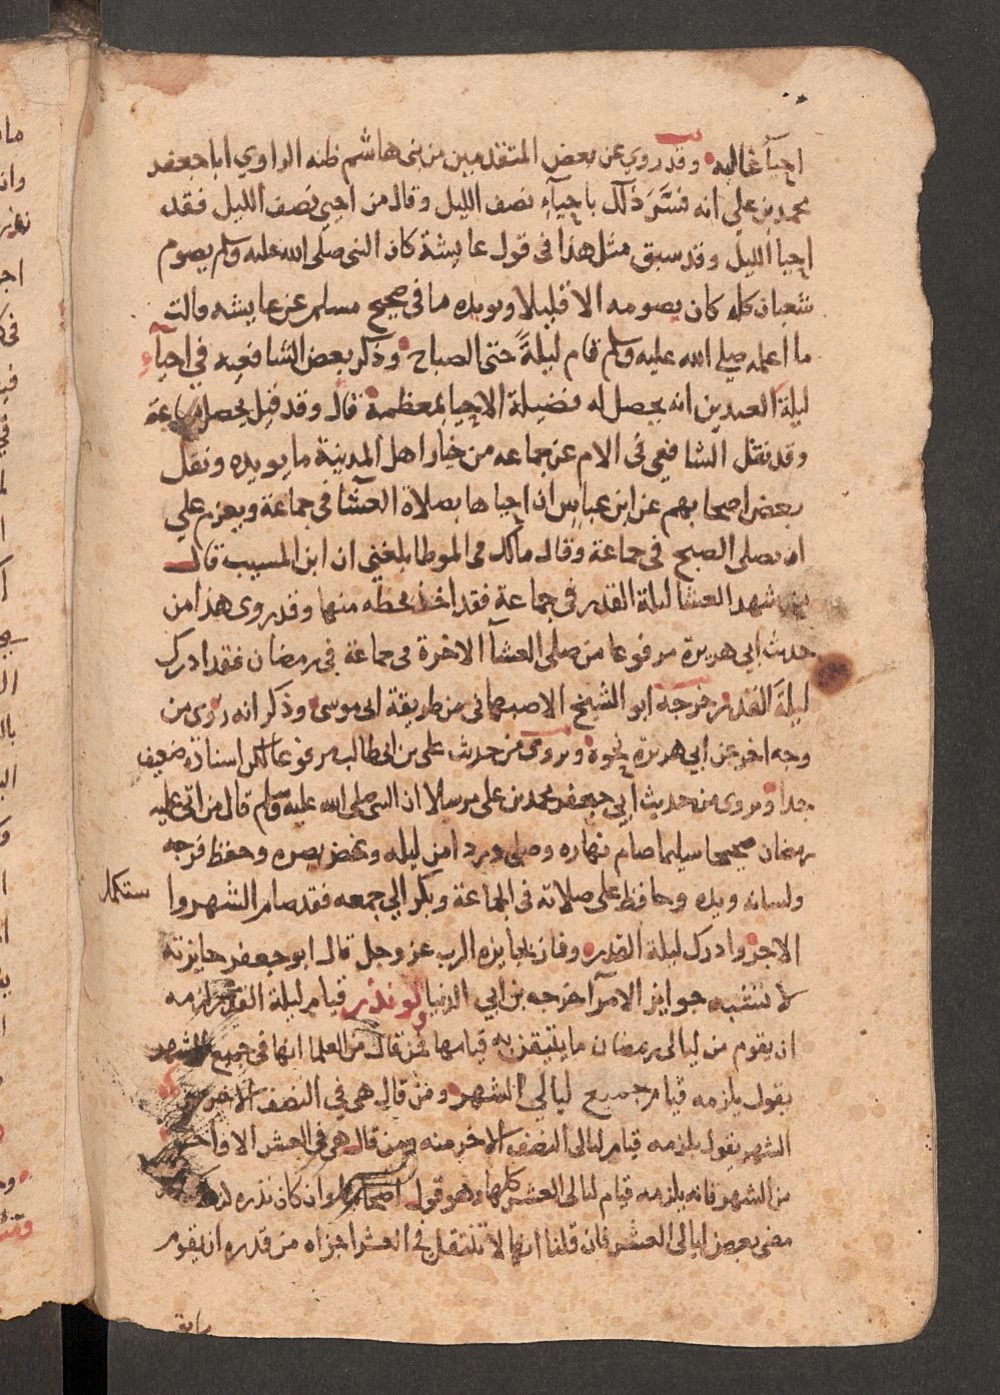 احيآ غالبه وقد روي عن بعض المتقدمين من بنى هاشم ظنه الراوي ابا جعفر
محمد بن علي انه فسَّرَ ذلك باحيآءِ نصف الليل وقال من احيى نصف الليل فقد
احيا الليل وقد سبق مثل هذا فى قول عايشة كان النبى صلى الله عليه وسلم يصوم
شعبان كله كان يصومه الا قليلا ويويده ما فى صحيح مسلم عن عايشه قالت
ما اعلمه صلى الله عليه وسلم قام ليلةً حتى الصباح وذكر بعض الشافعيه في احيآء
ليلة العيدين انه يحصل له فضيلة الاحيا بمعظمه قال وقد قيل يحصل بساعة
وقد نقل الشافعي فى الام عن جماعه من خيار اهل المدينة ما يويده ونقل
بعض اصحابهم عن ابن عباس ان احياها بصلاة العشا فى جماعة ويعزم علي
ان يصلى الصبح فى جماعة وقال مالك فى الموطا بلغني ان ابن المسيب قال
شهد العشا ليلة القدر فى جماعة فقد اخذ بحظه منها وقد روى هذا من
حديث ابي هريرة مرفوعا من صلى العشآ الاخرة فى جماعة فى رمضان فقد ادرك
ليلة القدر خرجه ابو الشيخ الاصبهانى من طريقة ابى موسى وذكر انه روى من
وجه اخر عن ابي هريرة نحوه ويروى من حديث على بن ابى طالب مرفوعا لكن اسناده ضعيف
جدا ويروى من حديث ابي جعفر محمد بن على مرسلا ان النبى صلى الله عليه وسلم قال من اتى عليه
رمضان صحيحا سليما صام نهاره وصلى وردا من ليله وغض بصره وحفظ فرجه
ولسانه ويده وحافظ على صلاته فى الجماعة وبكر الي جمعه فقد صام الشهر وا ستكمل
الاجر وادرك ليلة القدر وفاز بجايزه الرب عز وجل قال ابو جعفر جايزته
لا تشبه جوايز الامرآ خرجه بن ابي الدنيا ولو نذر قيام ليلة القدر لزمه
ان يقوم من ليالى رمضان ما يتيقن به قيامها فمن قال من العلما انها فى جميع الشهر
يقول يلزمه قيام جميع ليالي الشهر ومن قال هى في النصف الاخر من
الشهر يقول يلزمه قيام ليالى النصف الاخر منه ومن قال هى فى العشر الاواخر
من الشهر فانه يلزمه قيام ليالى العشر كلها وهو قول اصحابنا وان كان نذره
مضى بعض ليالى العشر فان قلنا انها لا تنتقل فى العشر اجزاه من قدره ان يقوم